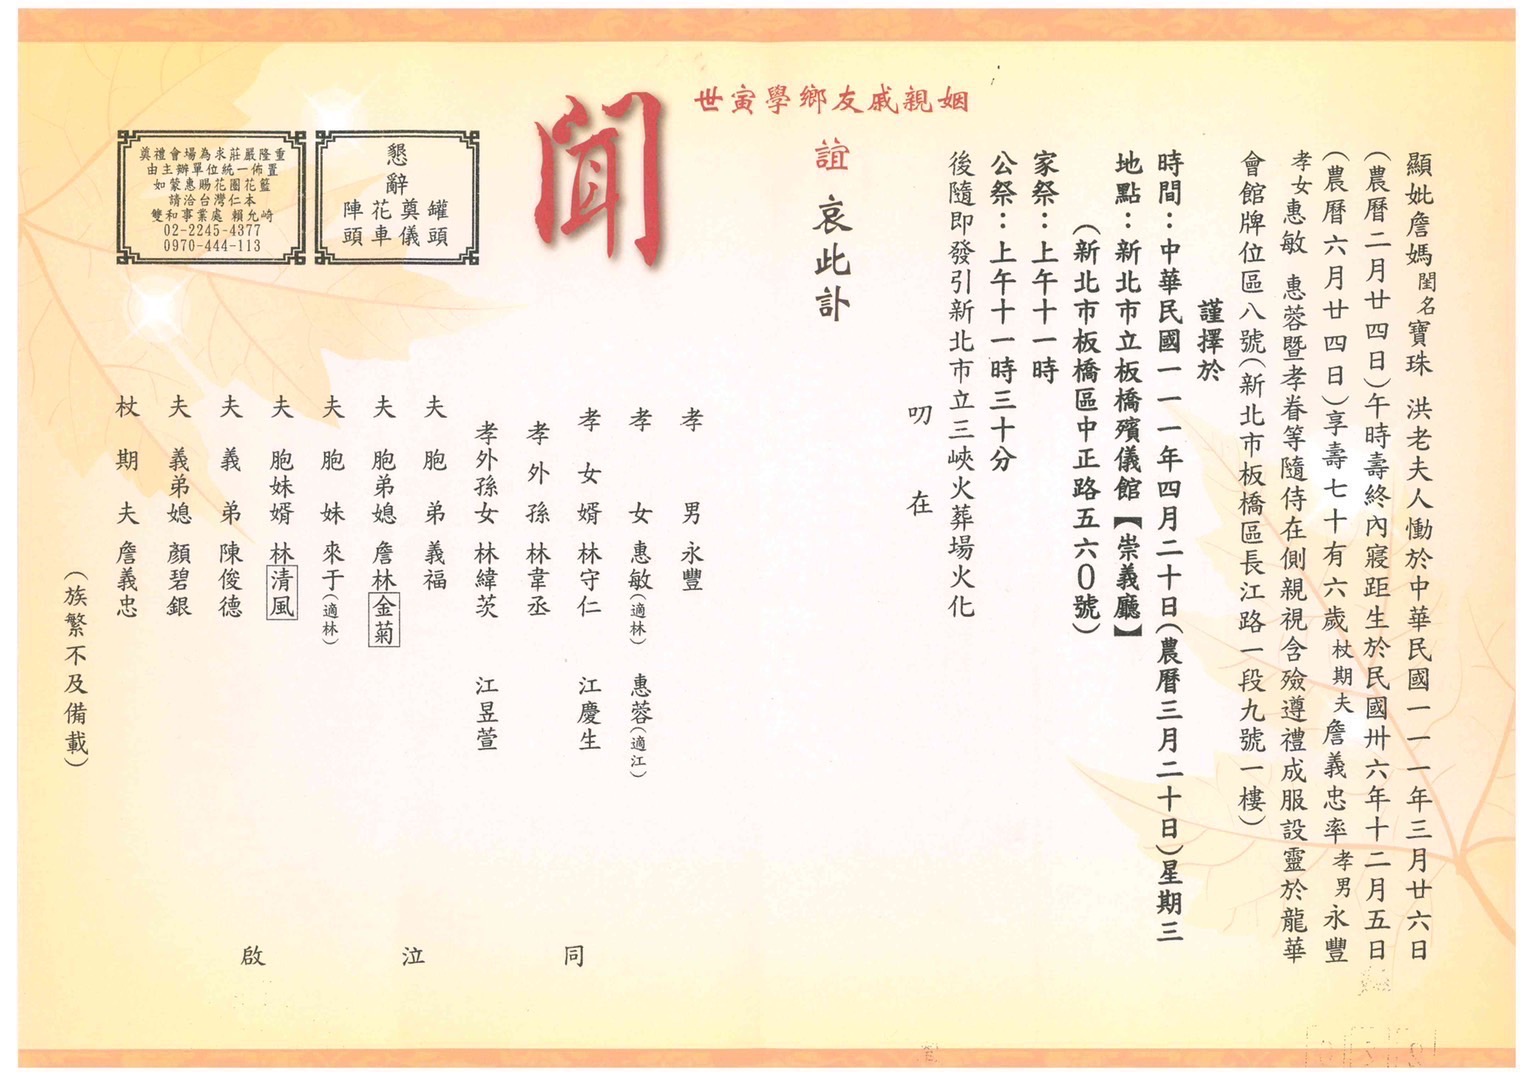 顯妣詹媽閨名寶珠 洪老夫人慟於中華民國一一一年三月廿六日
(農曆二月廿四日)午時壽終內寢距生於民國卅六年十二月五日
(農曆六月廿四日)享壽七十有六歲杖期夫詹義忠率孝男永豐
孝女惠敏 惠蓉暨孝眷等隨侍在側親視含殮遵禮成服設靈於龍華
會館牌位區八號(新北市板橋區長江路一段九號一樓)
謹擇於
時間:中華民國一一一年四月二十日(農曆三月二十日)星期三
地點:新北市立板橋殯儀館【崇義廳】
(新北市板橋區中正路五六0號)
家祭:上午十一時
公祭:上午十一時三十分
後隨即發引新北市立三峽火葬場火化
叨 在
姻親戚友鄉學寅世
誼 哀此訃
聞
孝 男 永豐
孝 女 惠敏(適林) 惠蓉(適江)
孝 女 婿 林守仁 江慶生
孝 外 孫 林韋丞
孝外孫女 林緯茨 江昱萱
夫 胞 弟 義福
夫 胞弟媳 詹林金菊
夫 胞 妹 來于(適林)
夫 胞妹婿 林清風
夫 義 弟 陳俊德
夫 義弟媳 顏碧銀
杖 期 夫 詹義忠
(族繁不及備載)
同 泣 啟
懇
辭
罐頭
奠儀
花車
陣頭
奠禮會場為求莊嚴隆重
由主辦單位統一佈置
如蒙惠賜花圈花籃
請洽台灣仁本
雙和事業處 賴允崎
02-2245-4377
0970-444-113